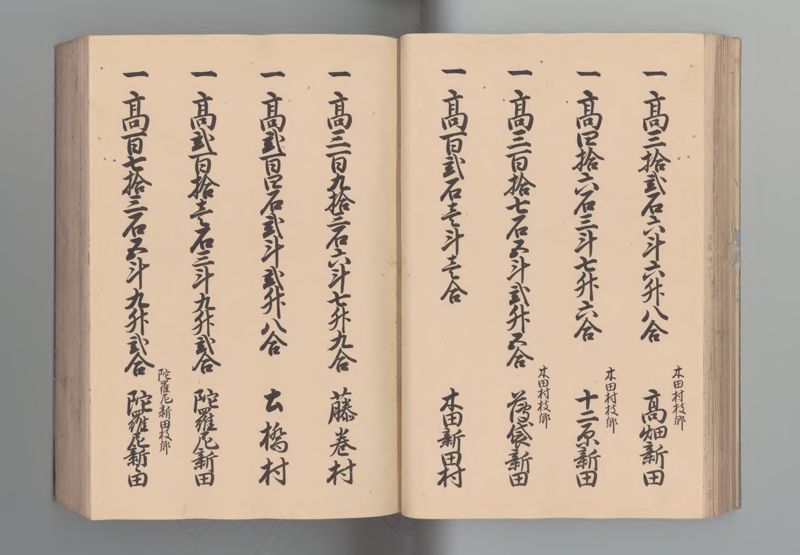 一 高三拾弐石六斗六升八合
木田村枝郷
高畑新田
一 高四拾六石三斗七升六合
木田村枝郷
十二原新田
一 高三百拾七石五斗弐升五合
木田村枝郷
新田
一 高百弐石壱斗壱合
木田新田村
一 高三百九拾三石六斗七升九合
藤巻村
一 高弐百四石弐斗弐升八合
土橋村
一 高弐百拾壱石三斗九升弐合
陀羅尼新田
一 高百七拾三石五斗九升弐合
陀羅尼新田枝郷
陀羅尼新田